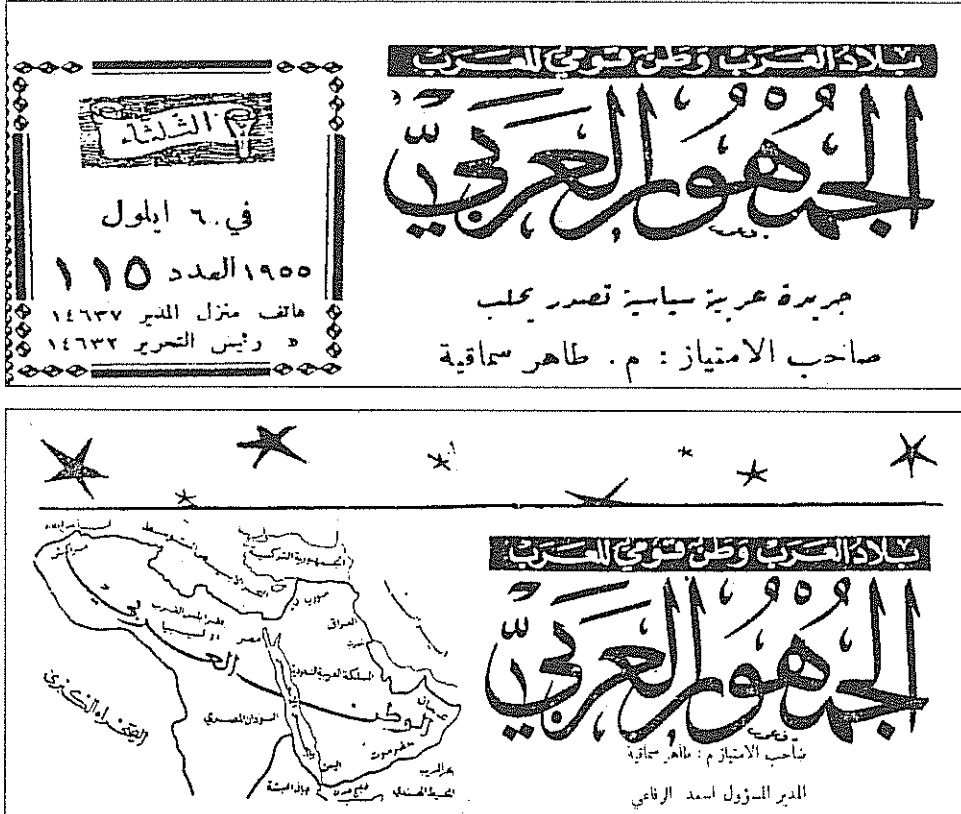 بلاد العرب وطن قومي للعرب
الجمهور العربي
جريدة عربية سياسية تصدر بحلب
صاحب الامتياز : م . طاهر سماقية
الثلثاء
في ٦ ايلول
١٩٥٥ العدد ١١٥
هاتف منزل المدير ١٤٦٣٧
» رئيس التحرير ١٤٦٣٢
بلاد العرب وطن قومي للعرب
الجمهور العربي
صاحب الامتياز م : طاهر سماقية
المدير المسؤول اسعد الرفاعي
الجمهورية التركية
سوريا
العراق
مصر
ليبيا
المملكة العربية السعودية
الوطن العربي
عمان
السودان المصري
حضرموت
اليمن
الصحراء الكبرى
بحر العرب
المحيط الهندي
خليج عدن